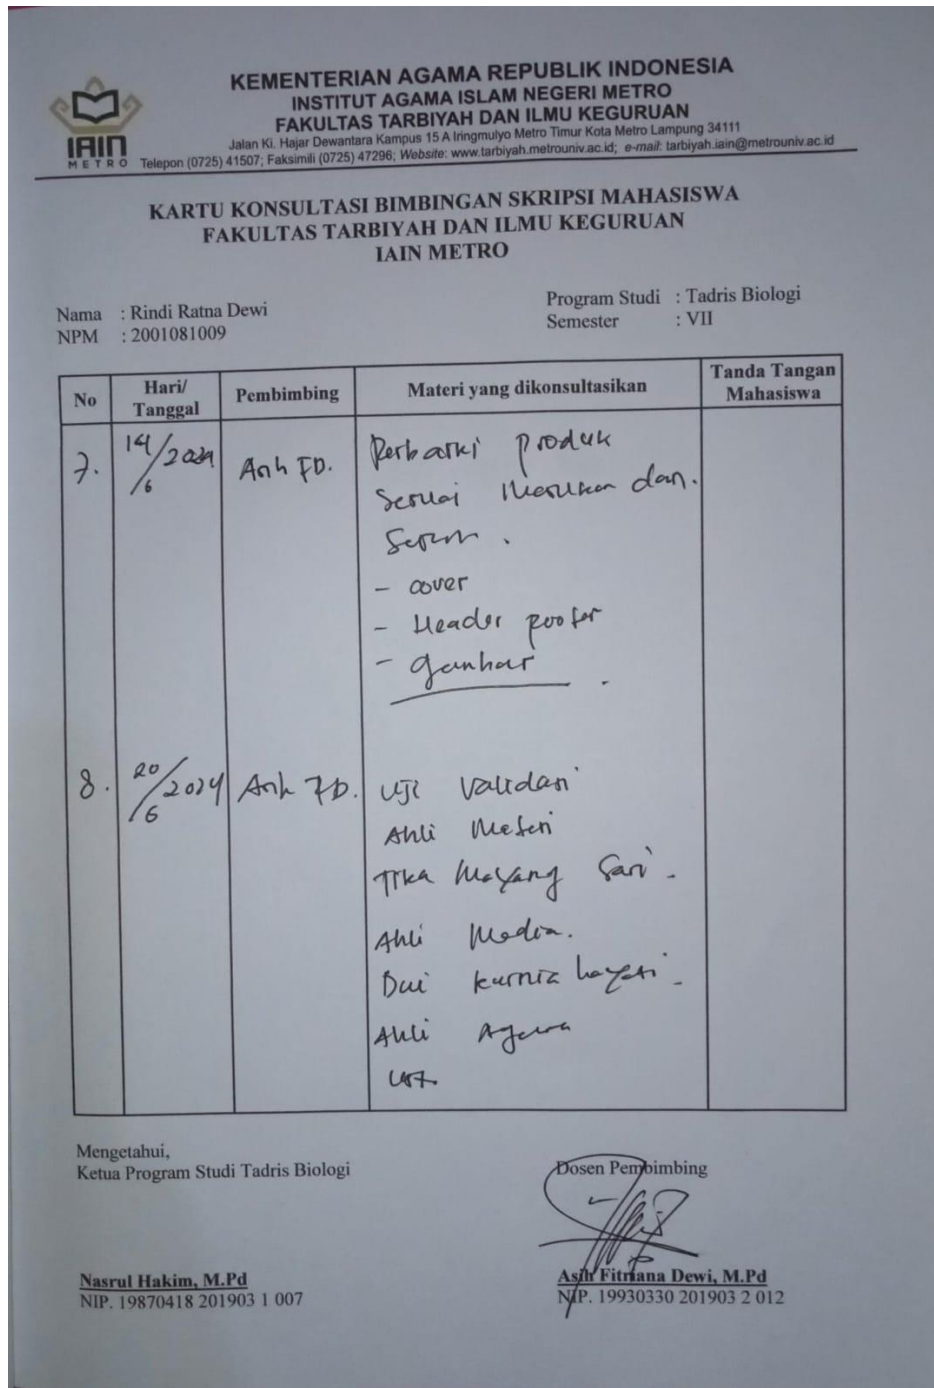 KEMENTERIAN AGAMA REPUBLIK INDONESIA
INSTITUT AGAMA ISLAM NEGERI METRO
FAKULTAS TARBIYAH DAN ILMU KEGURUAN
Jalan Ki. Hajar Dewantara Kampus 15 A Iringmulyo Metro Timur Kota Metro Lampung 34111
Telepon (0725) 41507; Faksimili (0725) 47296; Website: www.tarbiyah.metrouniv.ac.id; e-mail: tarbiyah.iain@metrouniv.ac.id
IAIN
METRO
KARTU KONSULTASI BIMBINGAN SKRIPSI MAHASISWA
FAKULTAS TARBIYAH DAN ILMU KEGURUAN
IAIN METRO
Nama : Rindi Ratna Dewi
NPM : 2001081009
Program Studi : Tadris Biologi
Semester : VII
No Hari/ Tanggal Pembimbing Materi yang dikonsultasikan Tanda Tangan Mahasiswa
7. 14/6 2024 Asih FD. Perbaiki produk
Sesuai Masukan dan
Saran.
- cover
- Header footer
- gambar
8. 20/6 2024 Asih FD. Uji Validasi
Ahli Materi
Tika Mayang Sari
Ahli Media.
Dwi Kurnia hayati
Ahli Agama
Mengetahui,
Ketua Program Studi Tadris Biologi
Dosen Pembimbing
Nasrul Hakim, M.Pd
NIP. 19870418 201903 1 007
Asih Fitriana Dewi, M.Pd
NIP. 19930330 201903 2 012